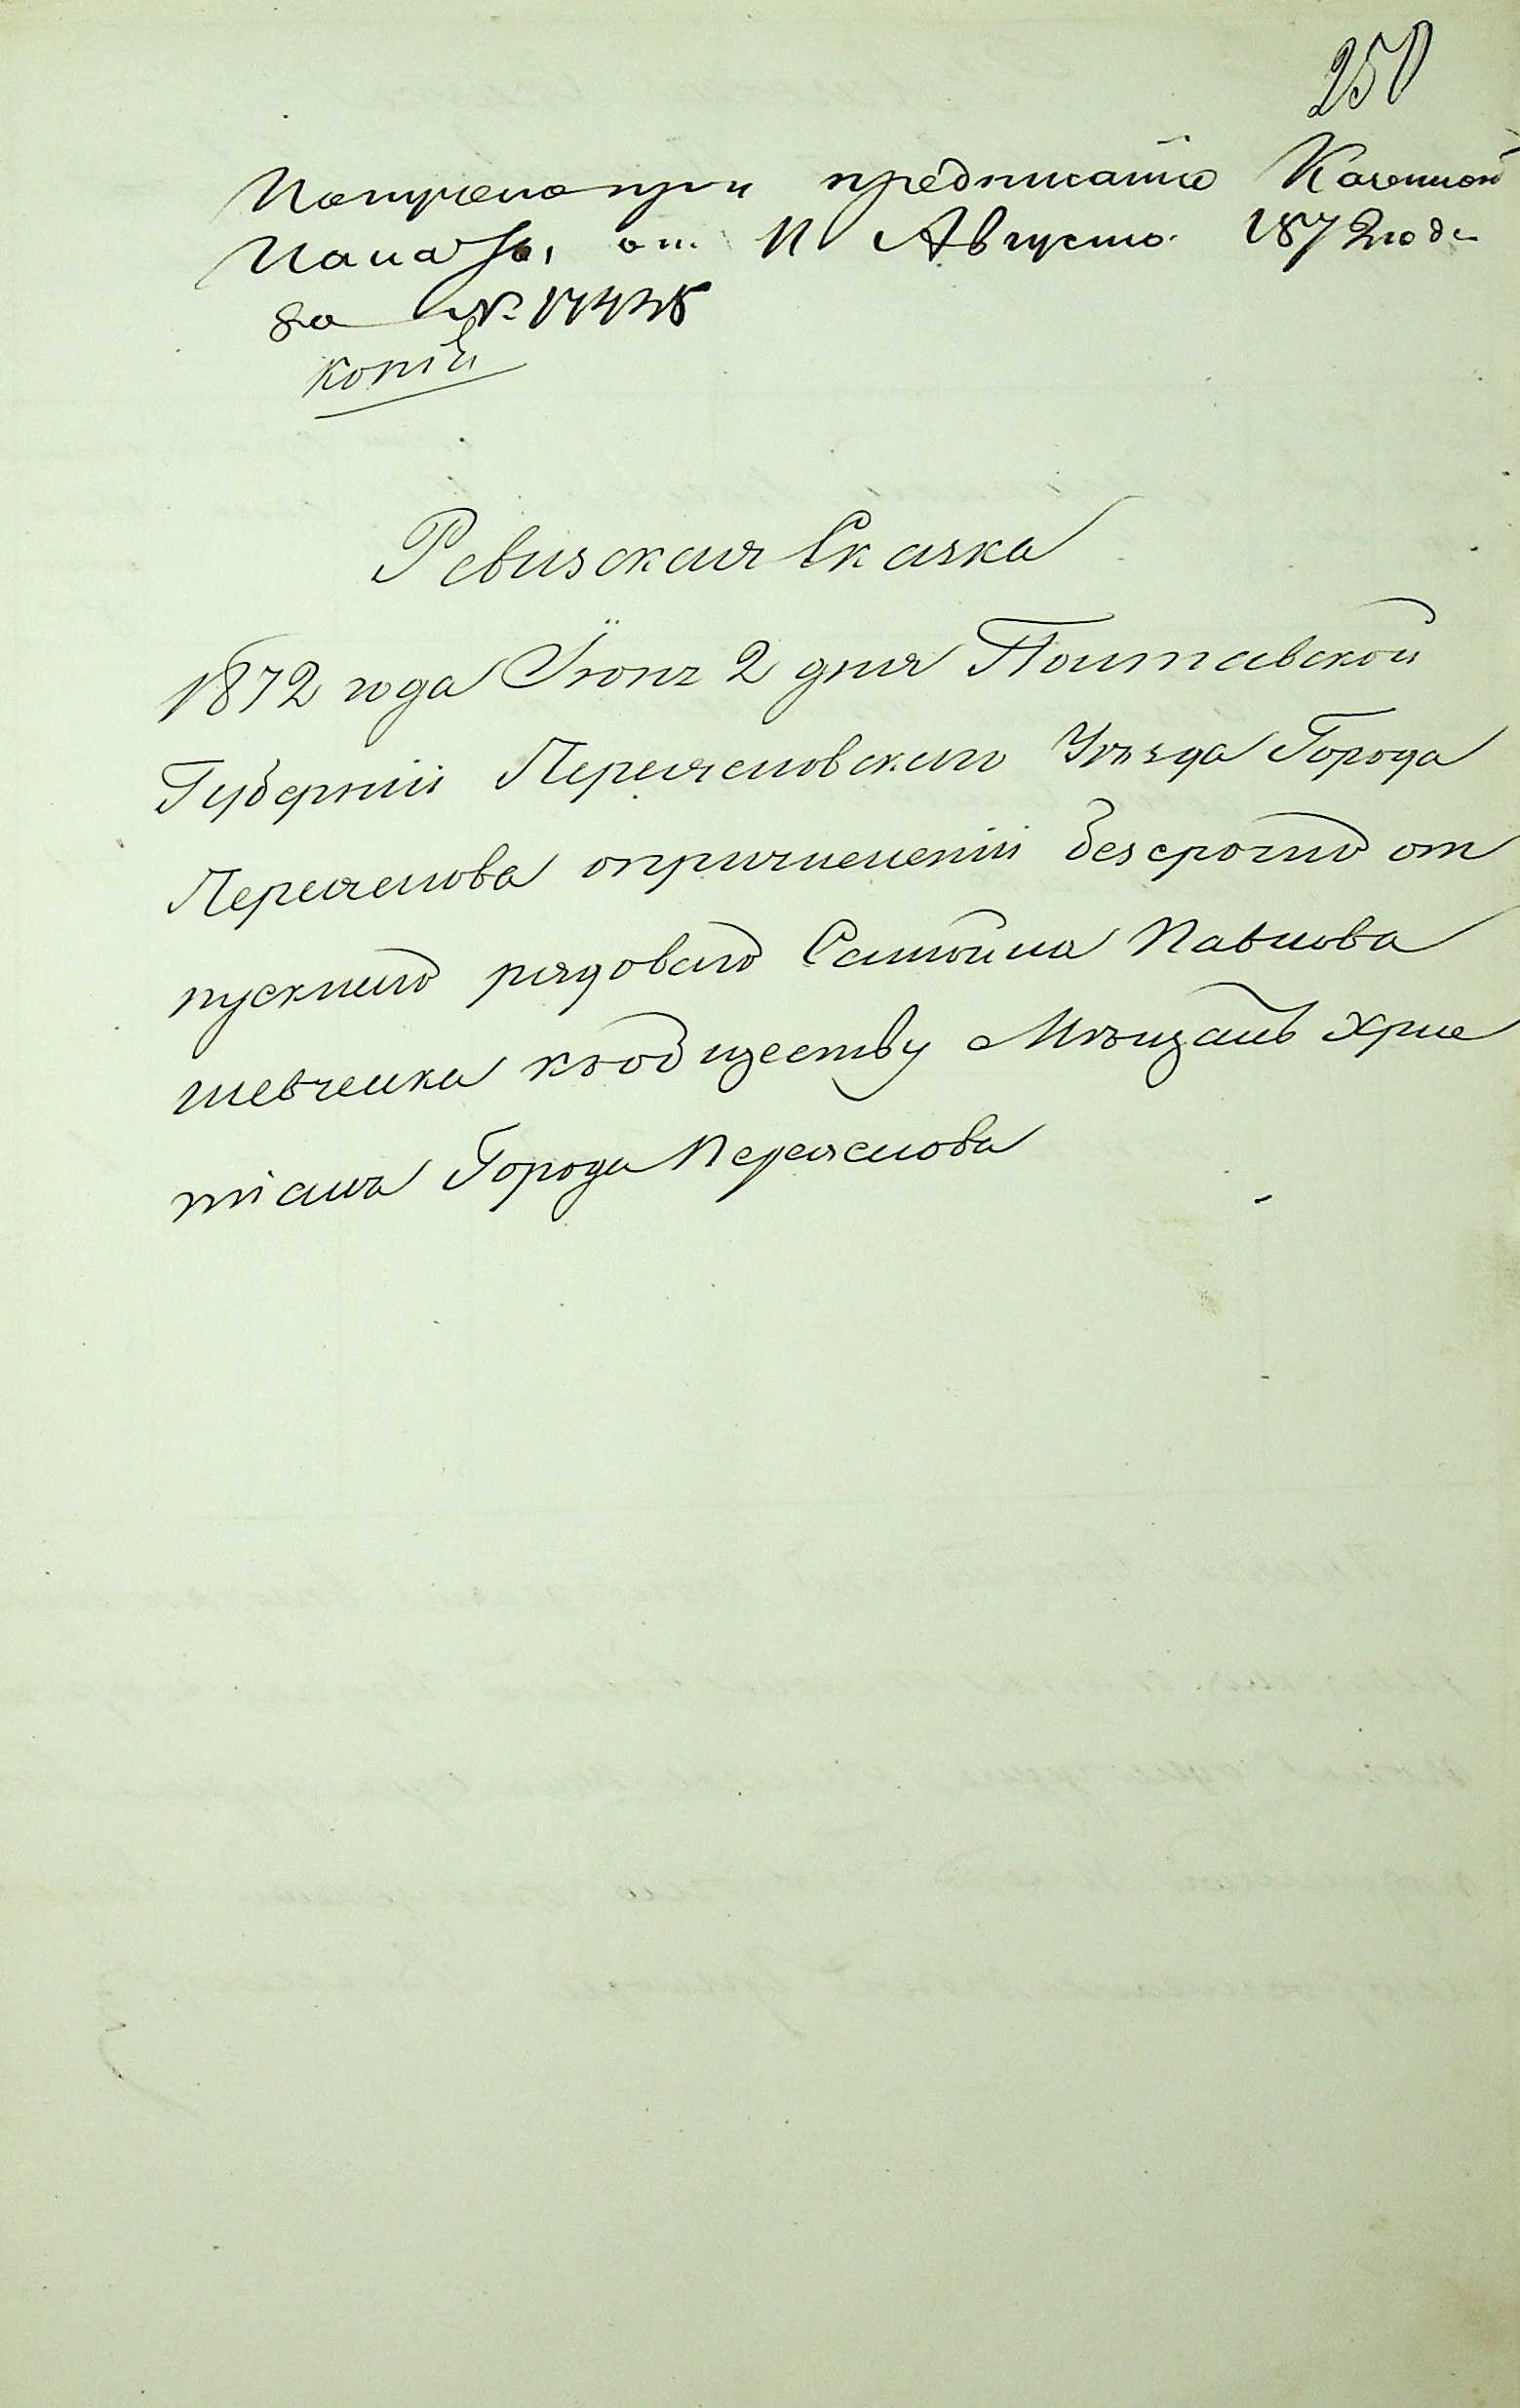 250
Получено при предписание Казенной
Палаты, от 11 Августа 1872 года
за №
копія
Ревизская Сказка
1872 года Іюня 2 дня Полтавской
Губерніи Переяславскаго Уѣзда Города
Переяслова опричисленіи безсрочно от
пускнаго рядоваго Самойла Павлова
шевченка кзобществу Мѣщанъ Хрис
тіанъ Города Переяслова